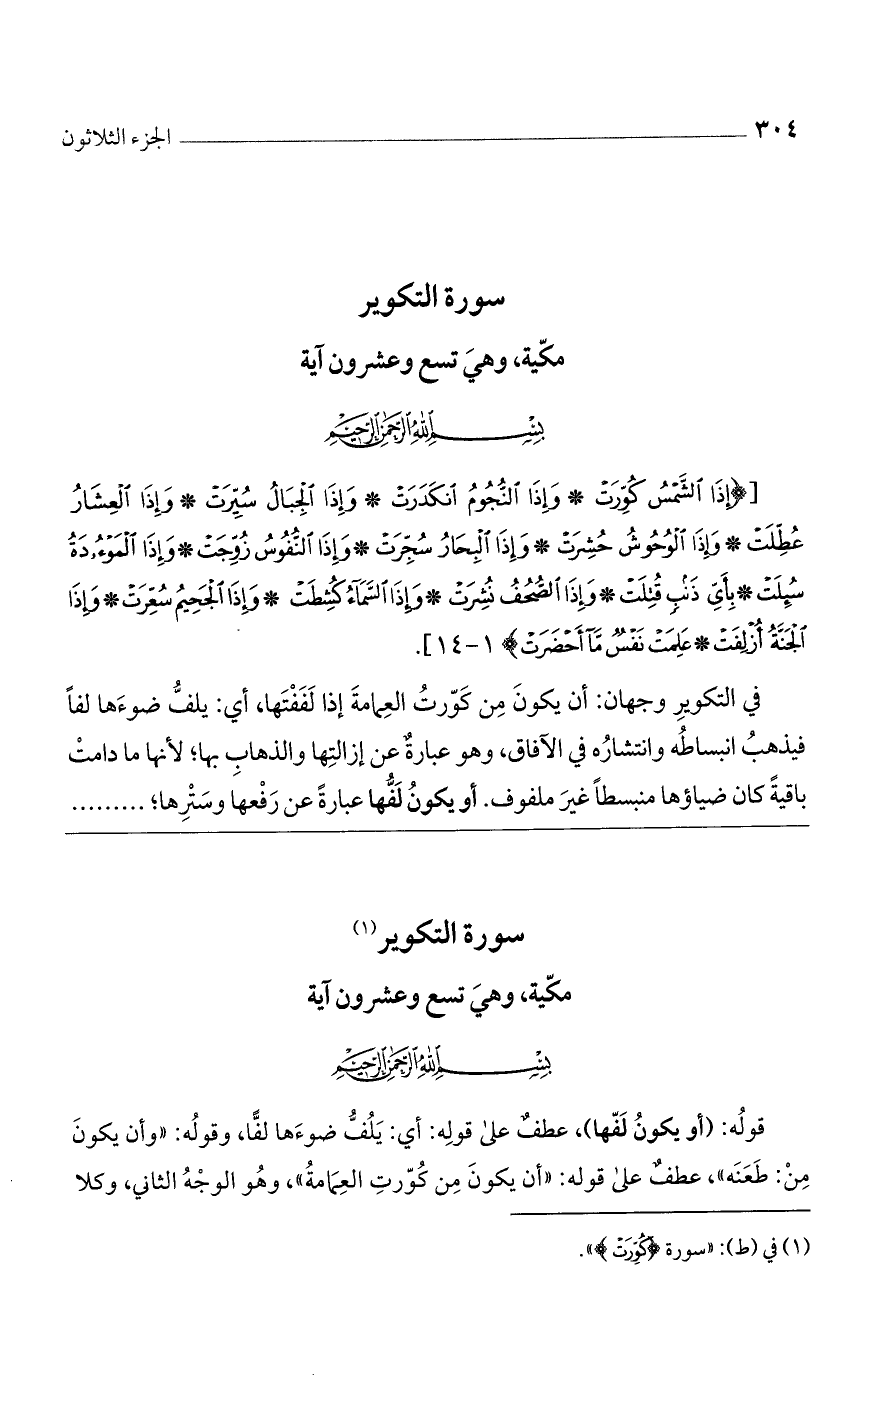 ٣٠٤ الجزء الثلاثون
سورة التكوير
مكّية، وهيَ تسع وعشرون آية
بِسْمِ ٱللَّهِ ٱلرَّحْمَٰنِ ٱلرَّحِيمِ
[﴿إِذَا ٱلشَّمْسُ كُوِّرَتْ * وَإِذَا ٱلنُّجُومُ ٱنكَدَرَتْ * وَإِذَا ٱلْجِبَالُ سُيِّرَتْ * وَإِذَا ٱلْعِشَارُ
عُطِّلَتْ * وَإِذَا ٱلْوُحُوشُ حُشِرَتْ * وَإِذَا ٱلْبِحَارُ سُجِّرَتْ * وَإِذَا ٱلنُّفُوسُ زُوِّجَتْ * وَإِذَا ٱلْمَوْءُۥدَةُ
سُئِلَتْ * بِأَىِّ ذَنۢبٍ قُتِلَتْ * وَإِذَا ٱلصُّحُفُ نُشِرَتْ * وَإِذَا ٱلسَّمَآءُ كُشِطَتْ * وَإِذَا ٱلْجَحِيمُ سُعِّرَتْ * وَإِذَا
ٱلْجَنَّةُ أُزْلِفَتْ * عَلِمَتْ نَفْسٌ مَّآ أَحْضَرَتْ﴾ ١-١٤].
في التكويرِ وجهان: أن يكونَ مِن كَوّرتُ العِمامةَ إذا لَفَفْتَها، أي: يلفُّ ضوءَها لفاً
فيذهبُ انبساطُه وانتشارُه في الآفاق، وهو عبارةٌ عن إزالتِها والذهابِ بها؛ لأنها ما دامتْ
باقيةً كان ضياؤها منبسطاً غيرَ ملفوف. أو يكونُ لَفُّها عبارةً عن رَفْعها وسَتْرِها؛ .........
سورة التكوير(١)
مكّية، وهيَ تسع وعشرون آية
بِسْمِ ٱللَّهِ ٱلرَّحْمَٰنِ ٱلرَّحِيمِ
قولُه: (أو يكونُ لَفّها)، عطفٌ علىٰ قولِه: أي: يَلُفُّ ضوءَها لفًّا، وقولُه: «وأن يكونَ
مِنْ: طَعَنَه»، عطفٌ علىٰ قوله: «أن يكونَ مِن كُوّرتِ العِمَامةُ»، وهُو الوجْهُ الثاني، وكلا
(١) في (ط): «سورة ﴿كُوِّرَتْ﴾».